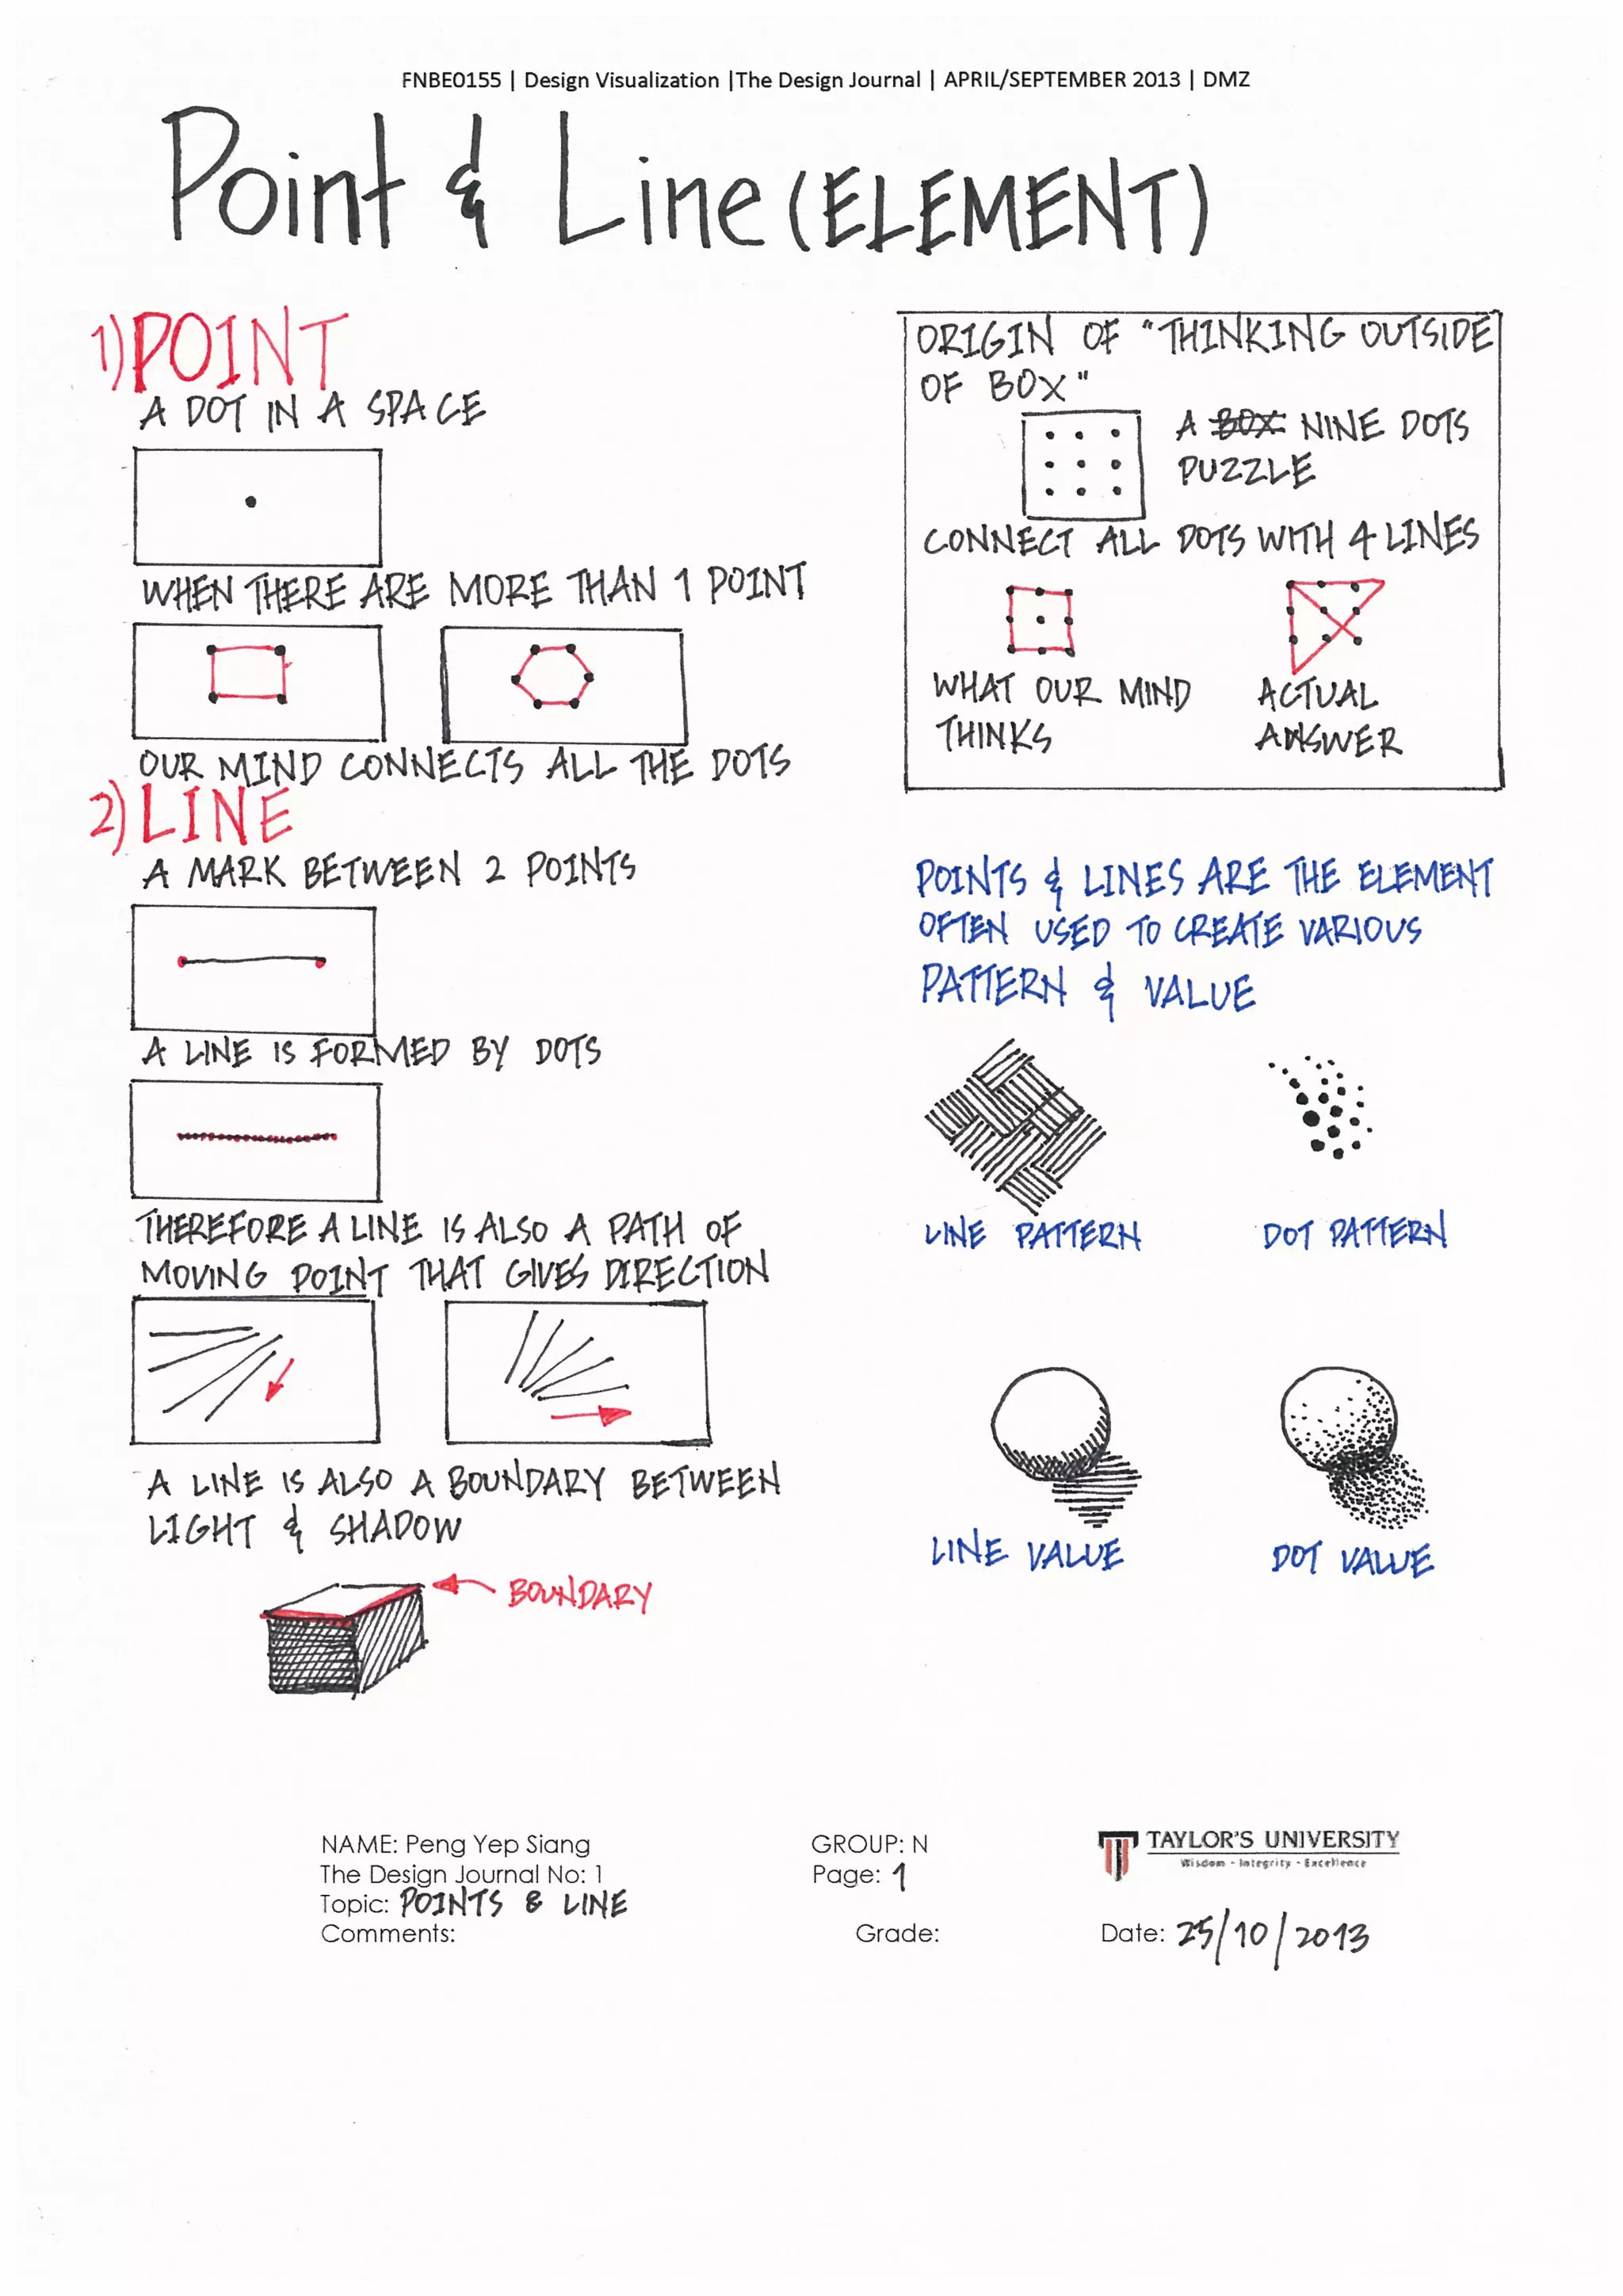 FNBE0155 | Design Visualization |The Design Journal | APRIL/SEPTEMBER 2013 | DMZ
Point & Line (ELEMENT)
1) POINT
A DOT IN A SPACE
WHEN THERE ARE MORE THAN 1 POINT
OUR MIND CONNECTS ALL THE DOTS
2) LINE
A MARK BETWEEN 2 POINTS
A LINE IS FORMED BY DOTS
THEREFORE A LINE IS ALSO A PATH OF
MOVING POINT THAT GIVES DIRECTION
A LINE IS ALSO A BOUNDARY BETWEEN
LIGHT & SHADOW
BOUNDARY
ORIGIN OF "THINKING OUTSIDE
OF BOX"
A BOX NINE DOTS
PUZZLE
CONNECT ALL DOTS WITH 4 LINES
WHAT OUR MIND
THINKS
ACTUAL
ANSWER
POINTS & LINES ARE THE ELEMENT
OFTEN USED TO CREATE VARIOUS
PATTERN & VALUE
LINE PATTERN
DOT PATTERN
LINE VALUE
DOT VALUE
NAME: Peng Yep Siang
The Design Journal No: 1
Topic: POINTS & LINE
Comments:
GROUP: N
Page: 1
Grade:
TAYLOR'S UNIVERSITY
Wisdom - Integrity - Excellence
Date: 25/10/2013